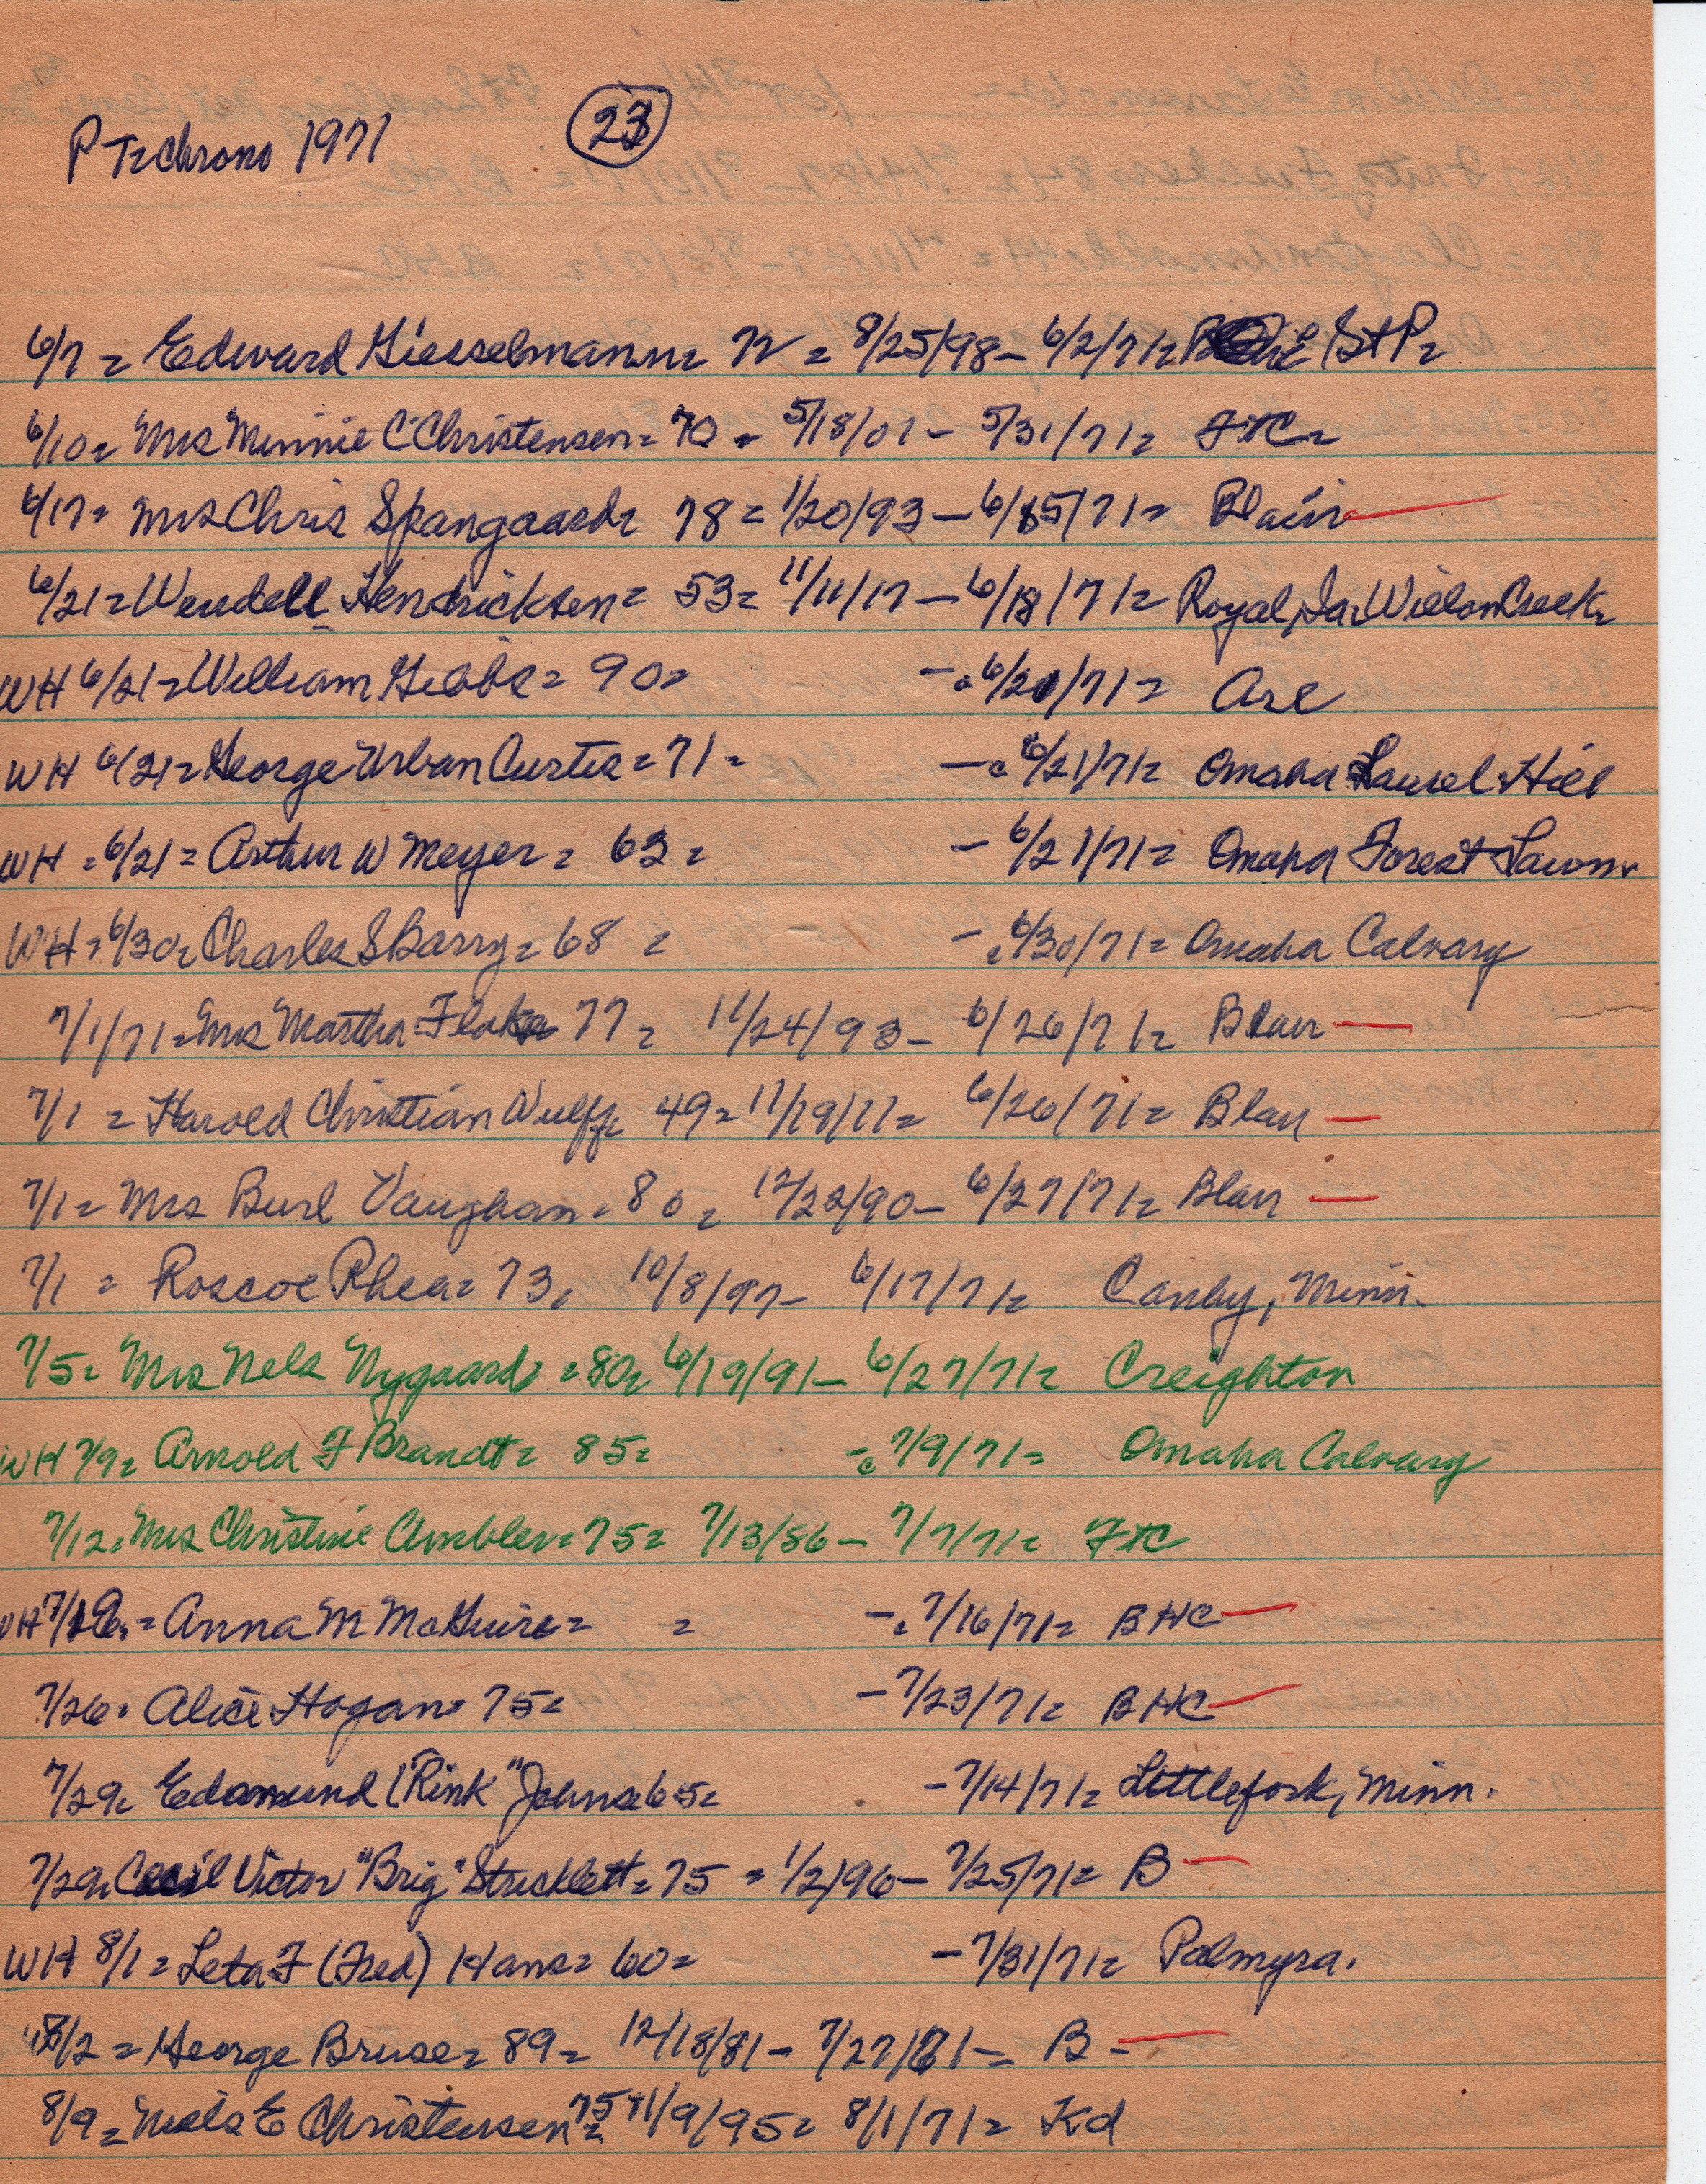 P Tr Chrono 1971 (23)
6/7 = Edward Giesselmann = 72 = 8/25/98 - 6/2/71 = St P =
6/10 = Mrs Minnie C Christensen = 70 = 5/18/01 - 5/31/71 = FTC =
6/17 = Mrs Chris Spangaard = 78 = 1/20/93 - 6/15/71 = Blair
6/21 = Wendell Hendricksen = 53 = 11/11/17 - 6/18/71 = Royal, Ia Willow Creek =
WH 6/21 = William Gibbs = 90 = - c 6/20/71 =
WH 6/21 = George Urban Curtis = 71 = - c 6/21/71 = Omaha Laurel Hill
WH = 6/21 = Arthur W Meyer = 63 = - 6/21/71 = Omaha Forest Lawn
WH = 6/30 = Charles S Barry = 68 = - c 6/30/71 = Omaha Calvary
7/1/71 = Mrs Martha Flake 77 = 11/24/93 - 6/26/71 = Blair
7/1 = Harold Christian Wulff = 49 = 11/19/11 = 6/26/71 = Blair
7/1 = Mrs Burl Vaughan = 80 = 12/22/90 - 6/27/71 = Blair
7/1 = Roscoe Rhea = 73 = 10/8/97 - 6/17/71 = Canby, Minn.
7/5 = Mrs Nels Nygaard = 80 = 6/19/91 - 6/27/71 = Creighton
WH 7/9 = Arnold F Brandt = 85 = - c 7/9/71 = Omaha Calvary
7/12 = Mrs Christine Ambler = 75 = 7/13/86 - 7/7/71 = FTC
WH = Anna M McGuire = = - c 7/16/71 = BHC
7/26 = Alice Hogan = 75 = - 7/23/71 = BHC
7/29 = Edamund ("Rink" Johns = 65 = - 7/14/71 = Littlefork, Minn.
7/29 = Cecil Victor "Brig" Stricklett = 75 = 1/2/96 - 7/25/71 = B
WH 8/1 = Leta F (Fred) Hans = 60 = - 7/31/71 = Palmyra.
8/2 = George Bruse = 89 = 12/18/81 - 7/27/71 = B -
8/9 = Niels E Christensen = 75 11/9/95 = 8/1/71 = Kd